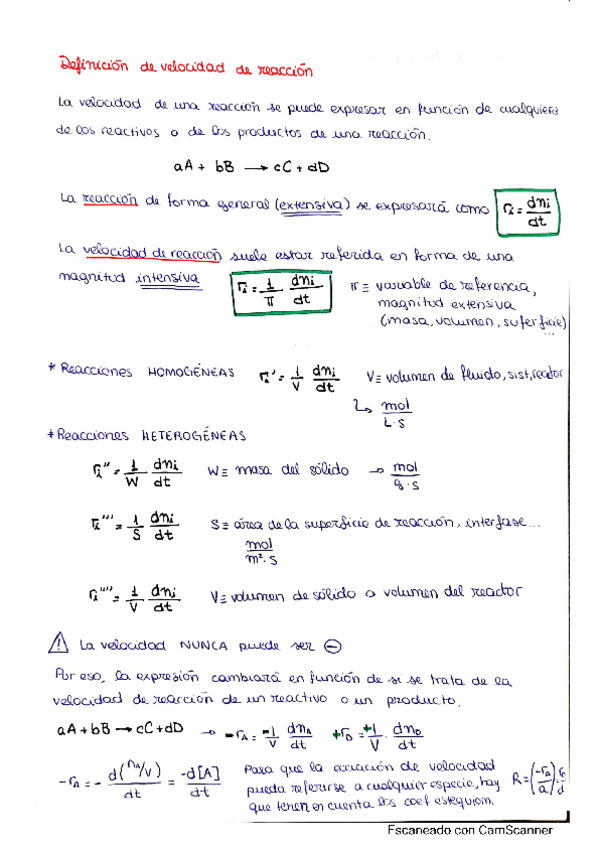 Definición de velocidad de reacción
La velocidad de una reacción se puede expresar en función de cualquiera
de los reactivos o de los productos de una reacción.
aA + bB → cC + dD
La reacción de forma general (extensiva) se expresará como ri = dni/dt
La velocidad de reacción suele estar referida en forma de una
magnitud intensiva ri = 1/π dni/dt π ≡ variable de referencia,
magnitud extensiva
(masa, volumen, superficie)
...
* Reacciones HOMOGÉNEAS ri' = 1/V dni/dt V ≡ volumen de fluido, sist, reactor
↳ mol/L·s
* Reacciones HETEROGÉNEAS
ri'' = 1/W dni/dt W ≡ masa del sólido → mol/g·s
ri''' = 1/S dni/dt S ≡ área de la superficie de reacción, interfase...
mol/m²·s
ri'''' = 1/V dni/dt V ≡ volumen de sólido o volumen del reactor
⚠ La velocidad NUNCA puede ser ⊖
Por eso, la expresión cambiará en función de si se trata de la
velocidad de reacción de un reactivo o un producto.
aA + bB → cC + dD → -rA = -1/V dnA/dt +rD = +1/V · dnD/dt
-rA = - d(nA/V)/dt = -d[A]/dt Para que la ecuación de velocidad
pueda referirse a cualquier especie, hay
que tener en cuenta los coef estequiom.
R = (-rA/a)
Escaneado con CamScanner